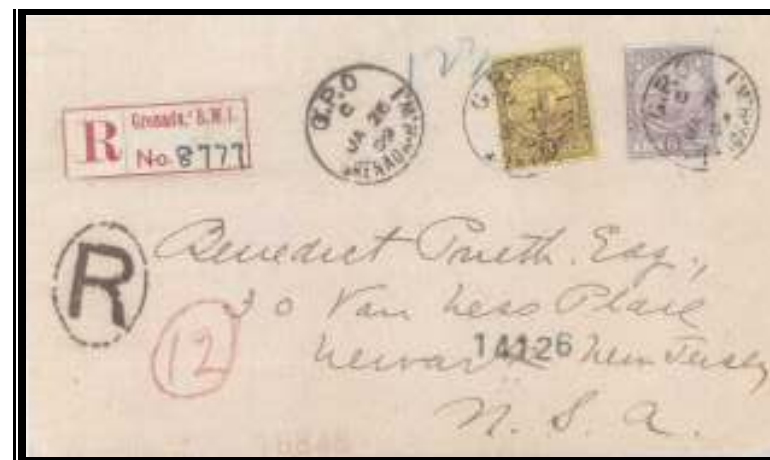 Grenada, B.W.I.
R No. 8777
G.P.O
C
JA 26
09
GRENADA B.W.I
R
Benedict Prieth. Esq.,
30 Van Ness Place
Newark New Jersey
14126
U. S. A.
12